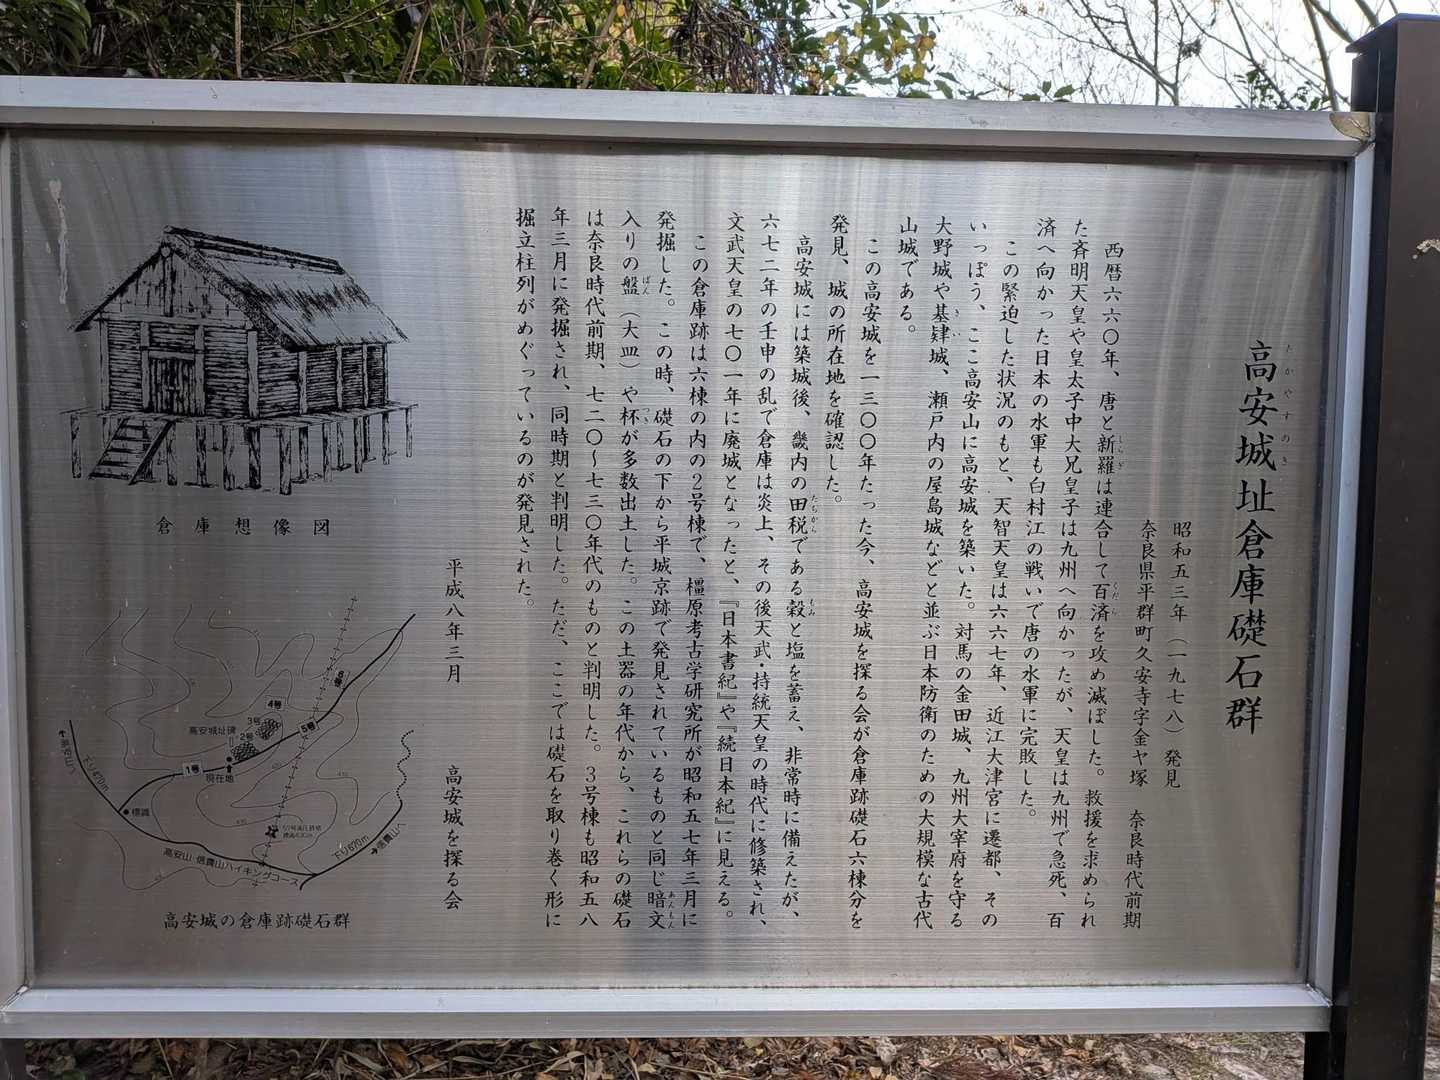 高安城址倉庫礎石群
たかやすのき
昭和五三年（一九七八）発見
奈良県平群町久安寺字金ヤ塚　奈良時代前期
西暦六六〇年、唐と新羅は連合して百済を攻め滅ぼした。救援を求められ
しらぎ
くだら
た斉明天皇や皇太子中大兄皇子は九州へ向かったが、天皇は九州で急死、百
済へ向かった日本の水軍も白村江の戦いで唐の水軍に完敗した。
この緊迫した状況のもと、天智天皇は六六七年、近江大津宮に遷都、その
いっぽう、ここ高安山に高安城を築いた。対馬の金田城、九州大宰府を守る
大野城や基肄城、瀬戸内の屋島城などと並ぶ日本防衛のための大規模な古代
きい
山城である。
この高安城を一三〇〇年たった今、高安城を探る会が倉庫跡礎石六棟分を
発見、城の所在地を確認した。
高安城には築城後、畿内の田税である穀と塩を蓄え、非常時に備えたが、
たちから
もみ
六七二年の壬申の乱で倉庫は炎上、その後天武・持統天皇の時代に修築され、
文武天皇の七〇一年に廃城となったと、『日本書紀』や『続日本紀』に見える。
この倉庫跡は六棟の内の2号棟で、橿原考古学研究所が昭和五七年三月に
発掘した。この時、礎石の下から平城京跡で発見されているものと同じ暗文
あんもん
入りの盤（大皿）や杯が多数出土した。この土器の年代から、これらの礎石
ばん
つき
は奈良時代前期、七二〇～七三〇年代のものと判明した。3号棟も昭和五八
年三月に発掘され、同時期と判明した。ただ、ここでは礎石を取り巻く形に
掘立柱列がめぐっているのが発見された。
平成八年三月　高安城を探る会
倉庫想像図
6号
4号
3号
5号
高安城址碑
2号
1号
現在地
標識
下り470m
下り670m
信貴山へ
高安山・信貴山ハイキングコース
高安城の倉庫跡礎石群